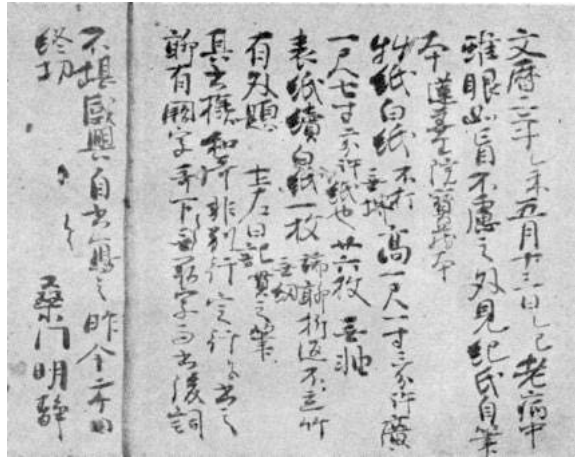 文暦二年乙未五月十三日乙巳老病中
雖眼如盲不慮之外見紀氏自筆
本蓮華王院寳蔵本
料紙白紙不打無堺高一尺一寸三分許廣
一尺七寸二分許紙也廿六枚無軸
表紙續白紙一枚端聊折返不立竹無紐
有外題土左日記貫之筆
其書様和哥非別行定行に書之
聊有闕字哥下無闕字而書後詞
不堪感興自書寫之昨今二ケ日
終功
桑門明静